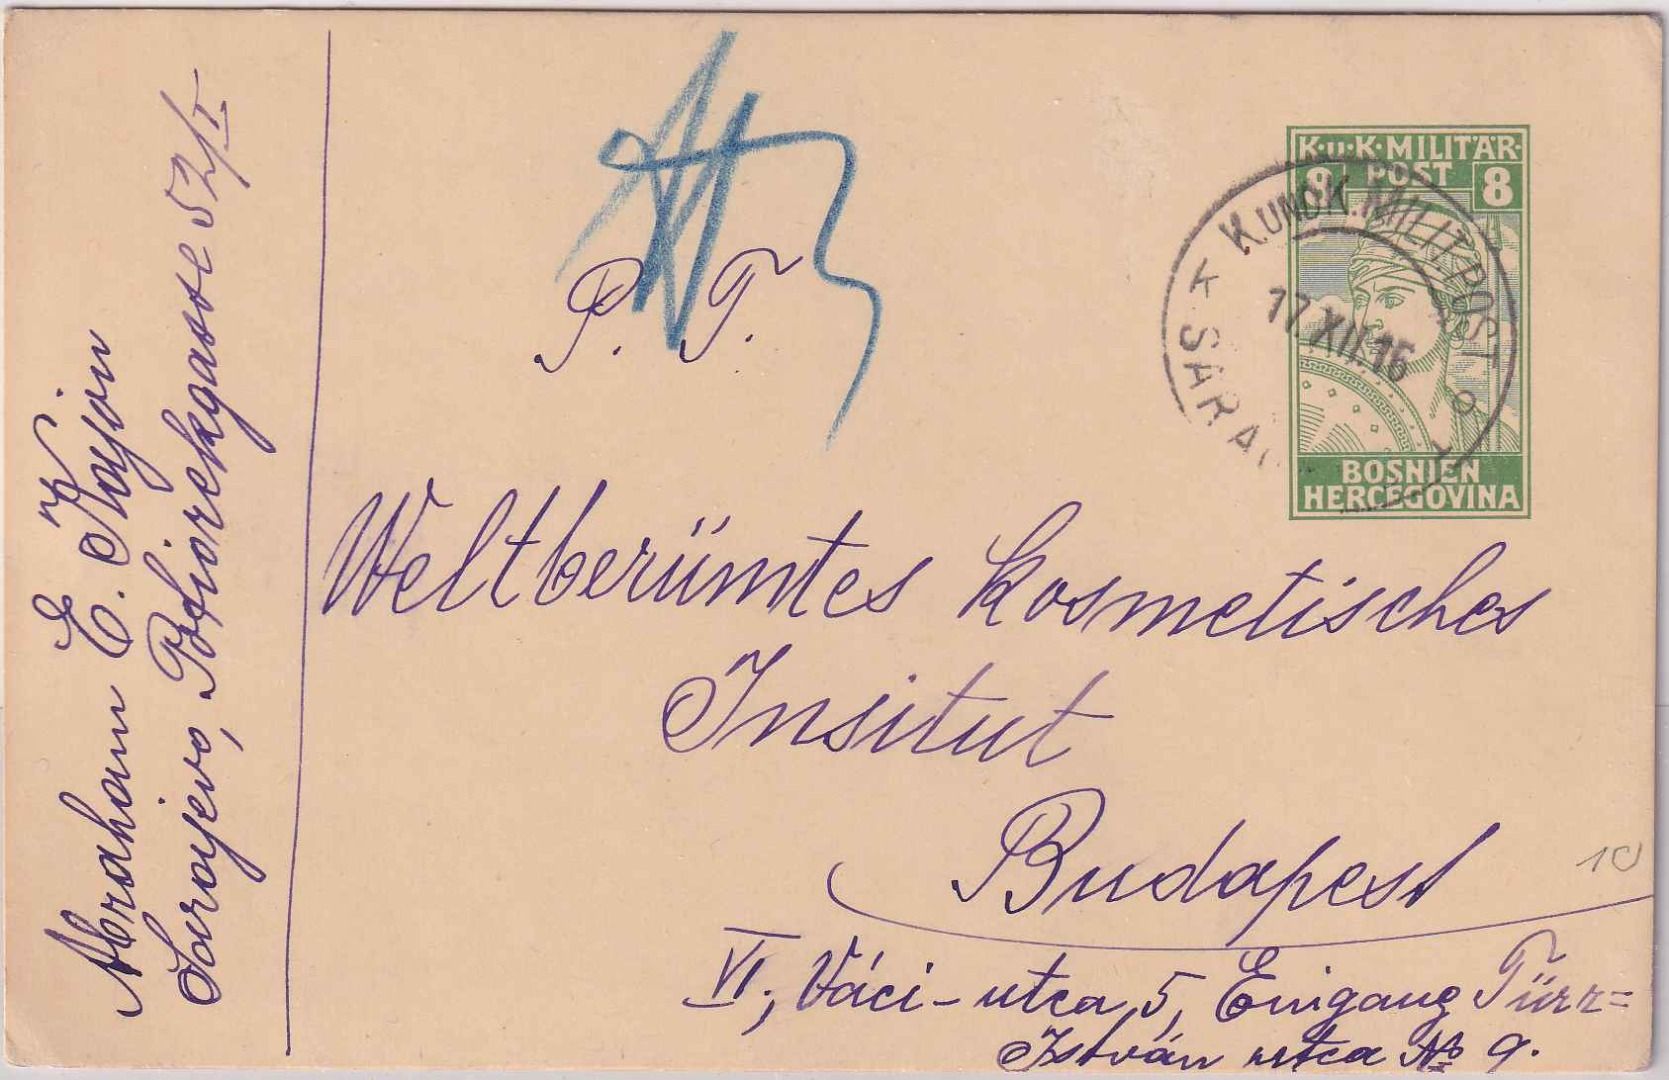 Abraham E. Kajon
Sarajevo, Potiorekgasse 52/I.
P. T.
Weltberümtes kosmetisches
Insitut
Budapest
VI., Váci-utca 5, Eingang Türr=
István utca № 9.
K·u·K·MILITÄR-
POST
8 8
BOSNIEN
HERCEGOVINA
K. UND K. MILIT. POST
17.XII.15
SARA
10